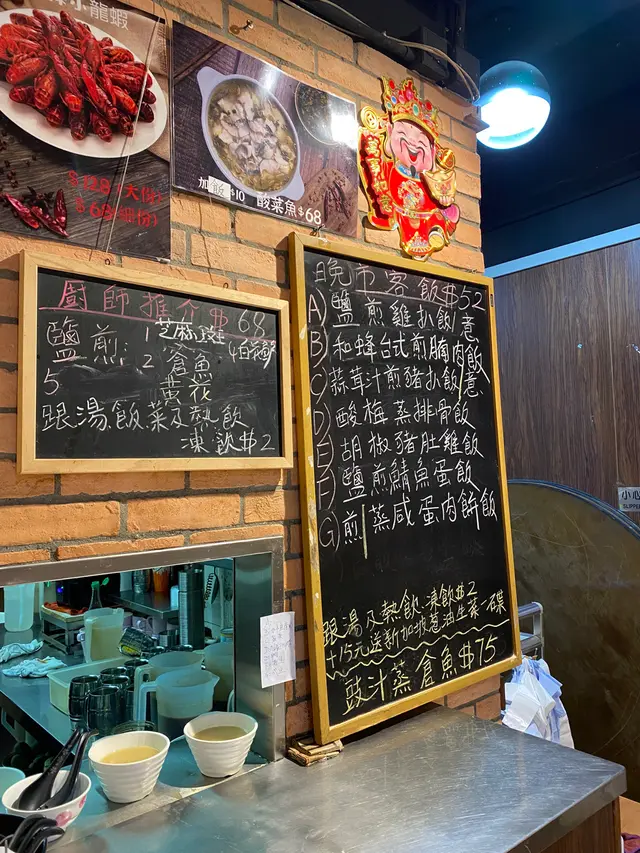 小龍蝦
$128 (大份)
$68 (細份)
加飯$10 酸菜魚$68
萬事如意
廚師推介$68
鹽煎:1芝麻斑
2 倉魚
黃花
跟湯飯菜及熱飲
凍飲$2
晚市客飯$52
A) 鹽煎雞扒飯/意
B) 和蜂台式煎腩肉飯
C) 蒜茸汁煎豬扒飯/意
D) 酸梅蒸排骨飯
E) 胡椒豬肚雞飯
F) 鹽煎鯖魚蛋飯
G) 煎/蒸咸蛋肉餅飯
跟湯及熱飲.凍飲$2
+15元送新加坡蔥油生菜一碟
豉汁蒸倉魚$75
小心